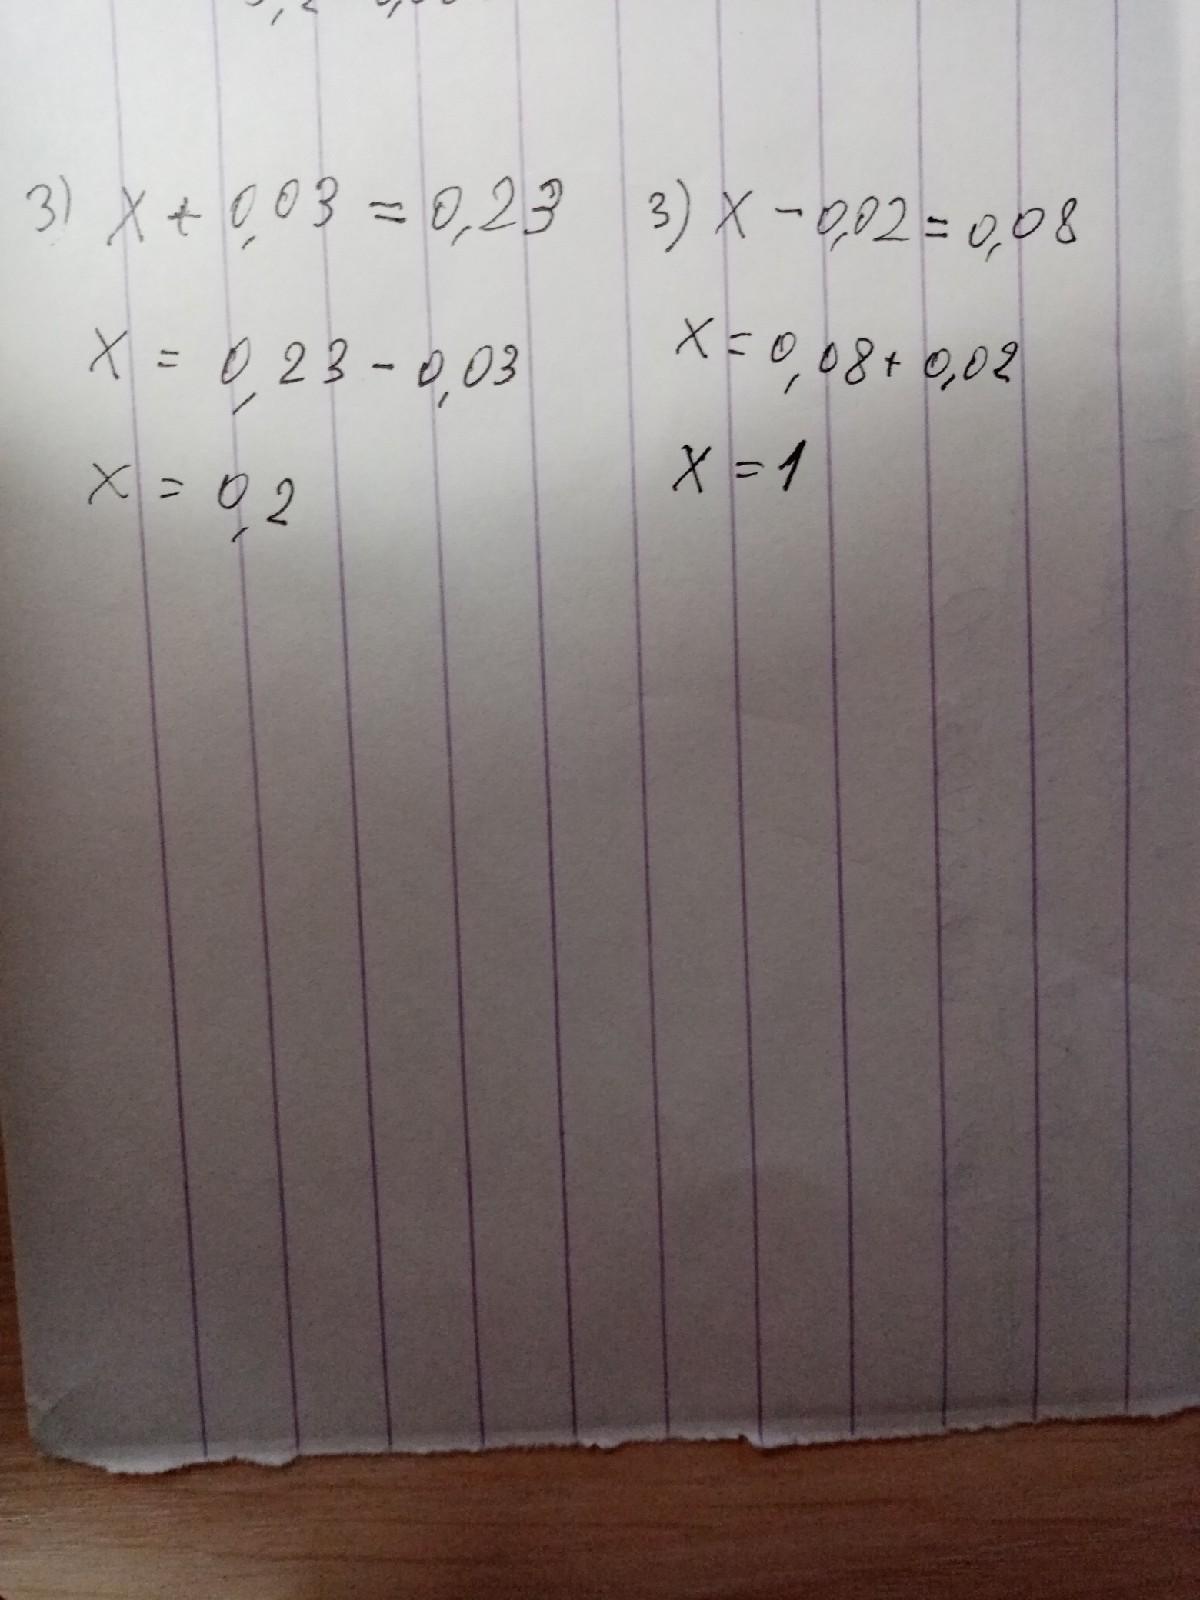 3) x + 0,03 = 0,23
x = 0,23 - 0,03
x = 0,2
3) x - 0,02 = 0,08
x = 0,08 + 0,02
x = 1